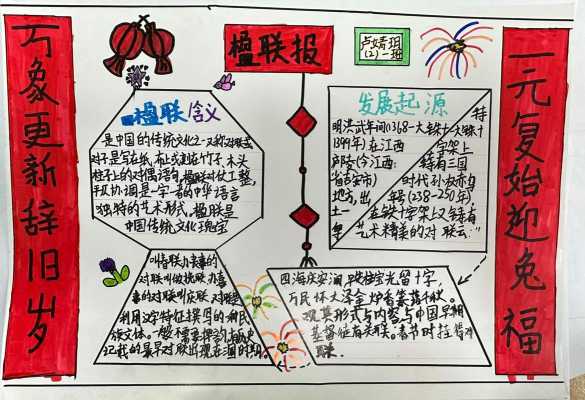 万象更新辞旧岁
楹联报
卢婧玥
(2)一班
一元复始迎兔福
楹联含义
是中国的传统文化之一又称对联或
对子是写在纸,布上或刻在竹子,木头
柱子上的对偶语句,楹联对仗工整,
平仄协调是一字一音的中华语言
独特的艺术形式,楹联是
中国传统文化瑰宝
发展起源
明洪武年间(1368—
1399年)在江西
庐陵(今江西
省吉安市)
地方,出
土一
特
大铁十
字架上
铸有三国
时代孙权赤乌
年号(238—250年)
在铁十字架上又铸有
艺术精美的对联云:"
叫春联办丧事的
对联叫做挽联办喜
事的对联叫庆联 对联是
利用汉字特征撰写的
族文体。一般不需要押韵
记载的最早对联出现在
四海庆安澜,
宝光留十字,
万民怀大泽金炉香篆蔼千秋。
观其形式与内容与中国早期
基督征有关联。春节时挂
联。